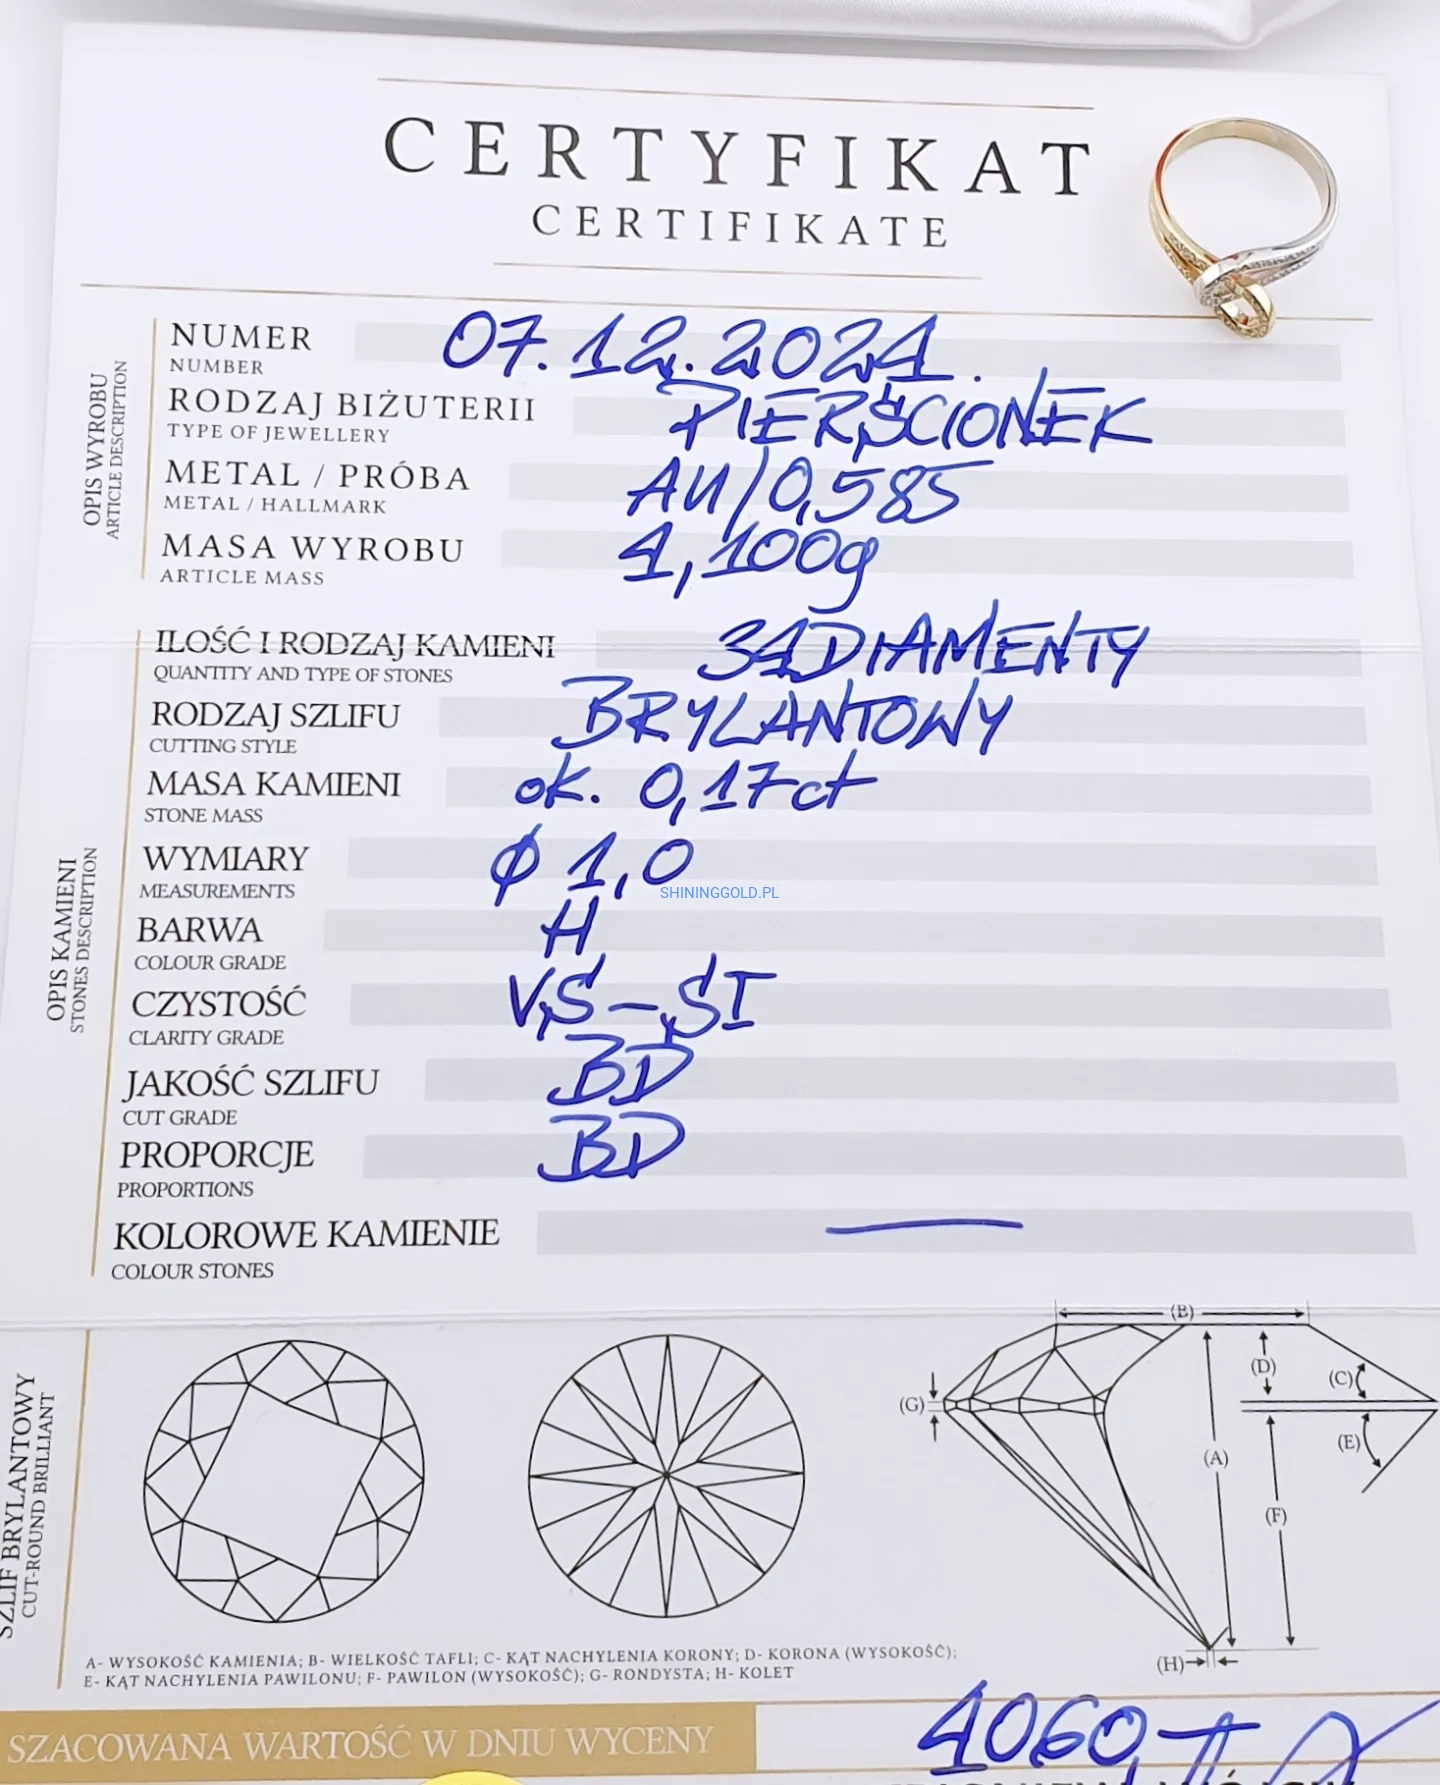 CERTYFIKAT
CERTIFIKATE
OPIS WYROBU
ARTICLE DESCRIPTION
NUMER 07.12.2024.
NUMBER
RODZAJ BIŻUTERII PIERŚCIONEK
TYPE OF JEWELLERY
METAL / PRÓBA AU/0,585
METAL / HALLMARK
MASA WYROBU 4,100g
ARTICLE MASS
OPIS KAMIENI
STONES DESCRIPTION
ILOŚĆ I RODZAJ KAMIENI 34 DIAMENTY
QUANTITY AND TYPE OF STONES
RODZAJ SZLIFU BRYLANTOWY
CUTTING STYLE
MASA KAMIENI ok. 0,17ct
STONE MASS
WYMIARY ϕ 1,0
MEASUREMENTS
SHININGGOLD.PL
BARWA H
COLOUR GRADE
CZYSTOŚĆ VS-SI
CLARITY GRADE
JAKOŚĆ SZLIFU BD
CUT GRADE
PROPORCJE BD
PROPORTIONS
KOLOROWE KAMIENIE —
COLOUR STONES
SZLIF BRYLANTOWY
CUT-ROUND BRILLIANT
(B)
(D)
(C)
(G)
(E)
(A)
(F)
(H)
A- WYSOKOŚĆ KAMIENIA; B- WIELKOŚĆ TAFLI; C- KĄT NACHYLENIA KORONY; D- KORONA (WYSOKOŚĆ);
E- KĄT NACHYLENIA PAWILONU; F- PAWILON (WYSOKOŚĆ); G- RONDYSTA; H- KOLET
SZACOWANA WARTOŚĆ W DNIU WYCENY 4060,-